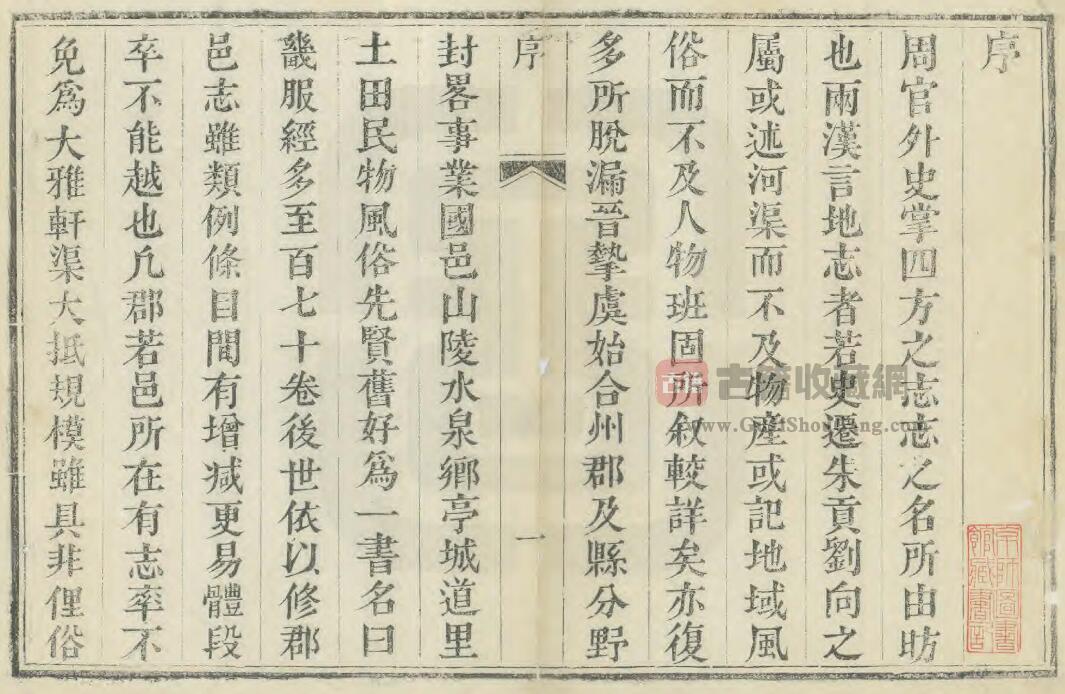 序
周官外史掌四方之志志之名所由昉
也兩漢言地志者若史遷朱貢劉向之
屬或述河渠而不及物產或記地域風
俗而不及人物班固所敘較詳矣亦復
多所脫漏晉摯虞始合州郡及縣分野
序
一
封畧事業國邑山陵水泉鄉亭城道里
土田民物風俗先賢舊好爲一書名曰
畿服經多至百七十卷後世依以修郡
邑志雖類例條目間有增减更易體段
卒不能越也凡郡若邑所在有志率不
免爲大雅軒渠大抵規模雖具非俚俗
古籍收藏網